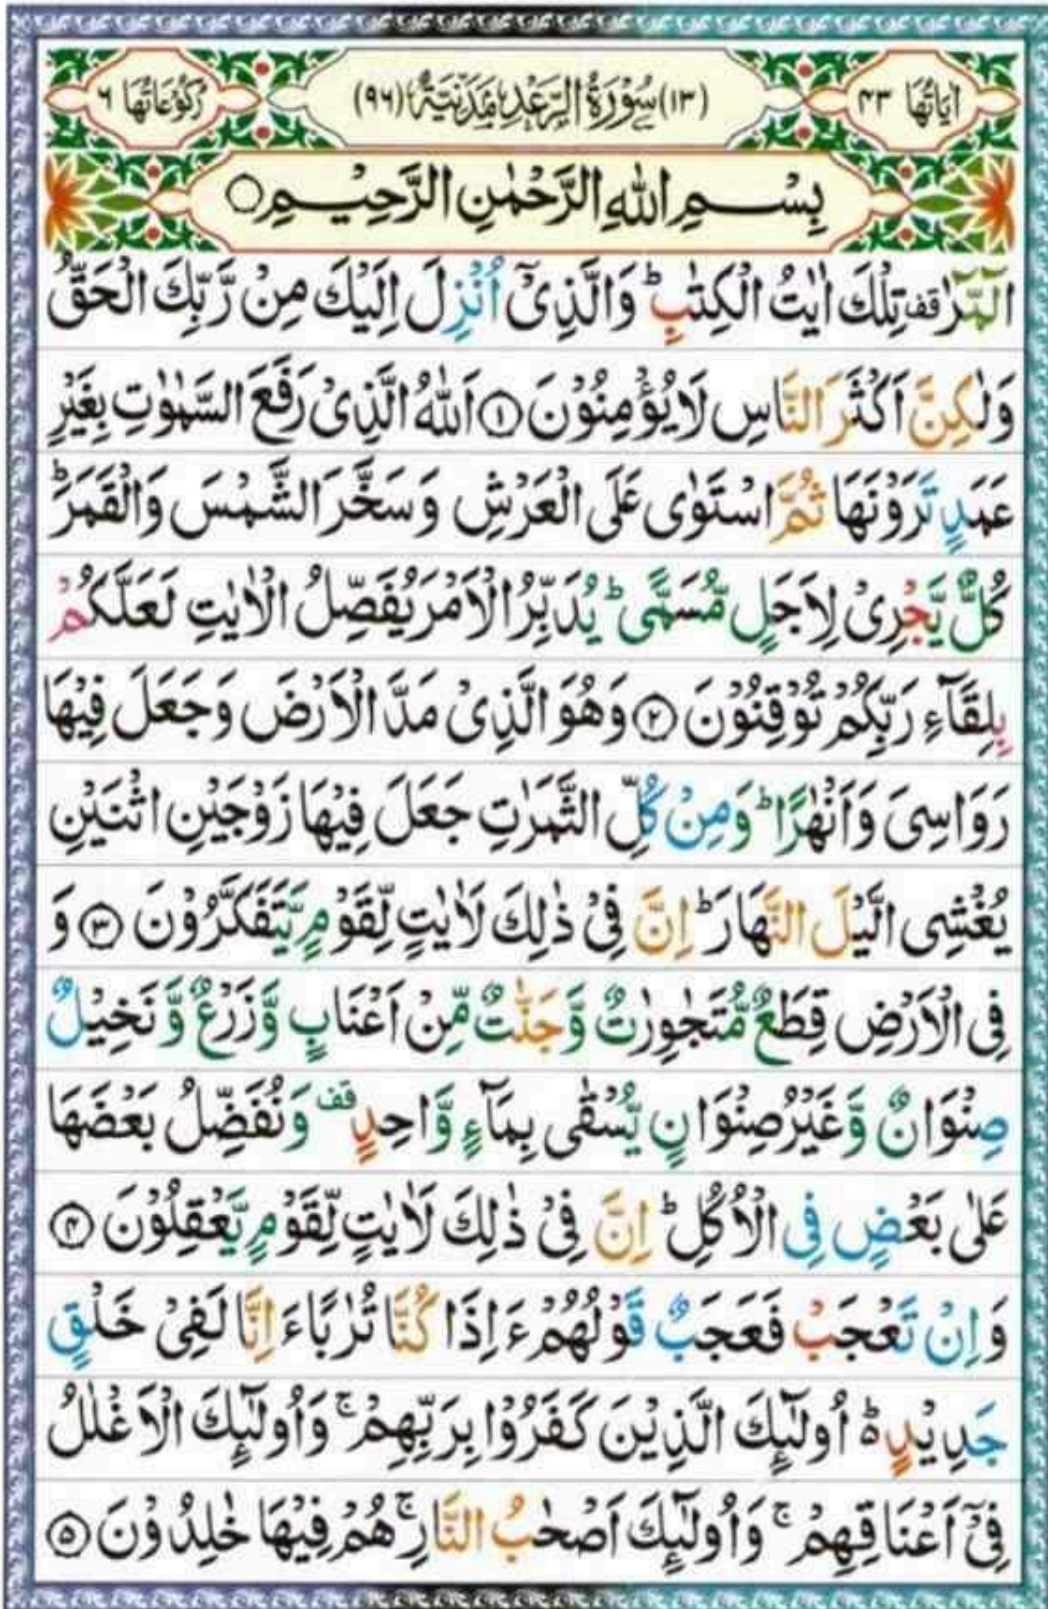 اٰیَاتُهَا ۴۳
(۱۳) سُوْرَةُ الرَّعْدِ مَدَنِيَّةٌ (۹۶)
رُكُوْعَاتُهَا ۶
بِسْمِ اللّٰهِ الرَّحْمٰنِ الرَّحِيْمِ ۝
الٓمّٓرٰ قف تِلْكَ اٰيٰتُ الْكِتٰبِ ؕ وَالَّذِىْۤ اُنْزِلَ اِلَيْكَ مِنْ رَّبِّكَ الْحَقُّ
وَلٰكِنَّ اَكْثَرَ النَّاسِ لَا يُؤْمِنُوْنَ ۝۱ اَللّٰهُ الَّذِىْ رَفَعَ السَّمٰوٰتِ بِغَيْرِ
عَمَدٍ تَرَوْنَهَا ثُمَّ اسْتَوٰى عَلَى الْعَرْشِ وَسَخَّرَ الشَّمْسَ وَالْقَمَرَ ؕ
كُلٌّ يَّجْرِىْ لِاَجَلٍ مُّسَمًّى ؕ يُدَبِّرُ الْاَمْرَ يُفَصِّلُ الْاٰيٰتِ لَعَلَّكُمْ
بِلِقَآءِ رَبِّكُمْ تُوْقِنُوْنَ ۝۲ وَهُوَ الَّذِىْ مَدَّ الْاَرْضَ وَجَعَلَ فِيْهَا
رَوَاسِىَ وَاَنْهٰرًا ؕ وَمِنْ كُلِّ الثَّمَرٰتِ جَعَلَ فِيْهَا زَوْجَيْنِ اثْنَيْنِ
يُغْشِى الَّيْلَ النَّهَارَ ؕ اِنَّ فِىْ ذٰلِكَ لَاٰيٰتٍ لِّقَوْمٍ يَّتَفَكَّرُوْنَ ۝۳ وَ
فِى الْاَرْضِ قِطَعٌ مُّتَجٰوِرٰتٌ وَّجَنّٰتٌ مِّنْ اَعْنَابٍ وَّزَرْعٌ وَّنَخِيْلٌ
صِنْوَانٌ وَّغَيْرُ صِنْوَانٍ يُّسْقٰى بِمَآءٍ وَّاحِدٍ قف وَنُفَضِّلُ بَعْضَهَا
عَلٰى بَعْضٍ فِى الْاُكُلِ ؕ اِنَّ فِىْ ذٰلِكَ لَاٰيٰتٍ لِّقَوْمٍ يَّعْقِلُوْنَ ۝۴
وَاِنْ تَعْجَبْ فَعَجَبٌ قَوْلُهُمْ ءَاِذَا كُنَّا تُرٰبًا ءَاِنَّا لَفِىْ خَلْقٍ
جَدِيْدٍ ؕ۬ اُولٰٓئِكَ الَّذِيْنَ كَفَرُوْا بِرَبِّهِمْ ۚ وَاُولٰٓئِكَ الْاَغْلٰلُ
فِىْۤ اَعْنَاقِهِمْ ۚ وَاُولٰٓئِكَ اَصْحٰبُ النَّارِ ۚ هُمْ فِيْهَا خٰلِدُوْنَ ۝۵